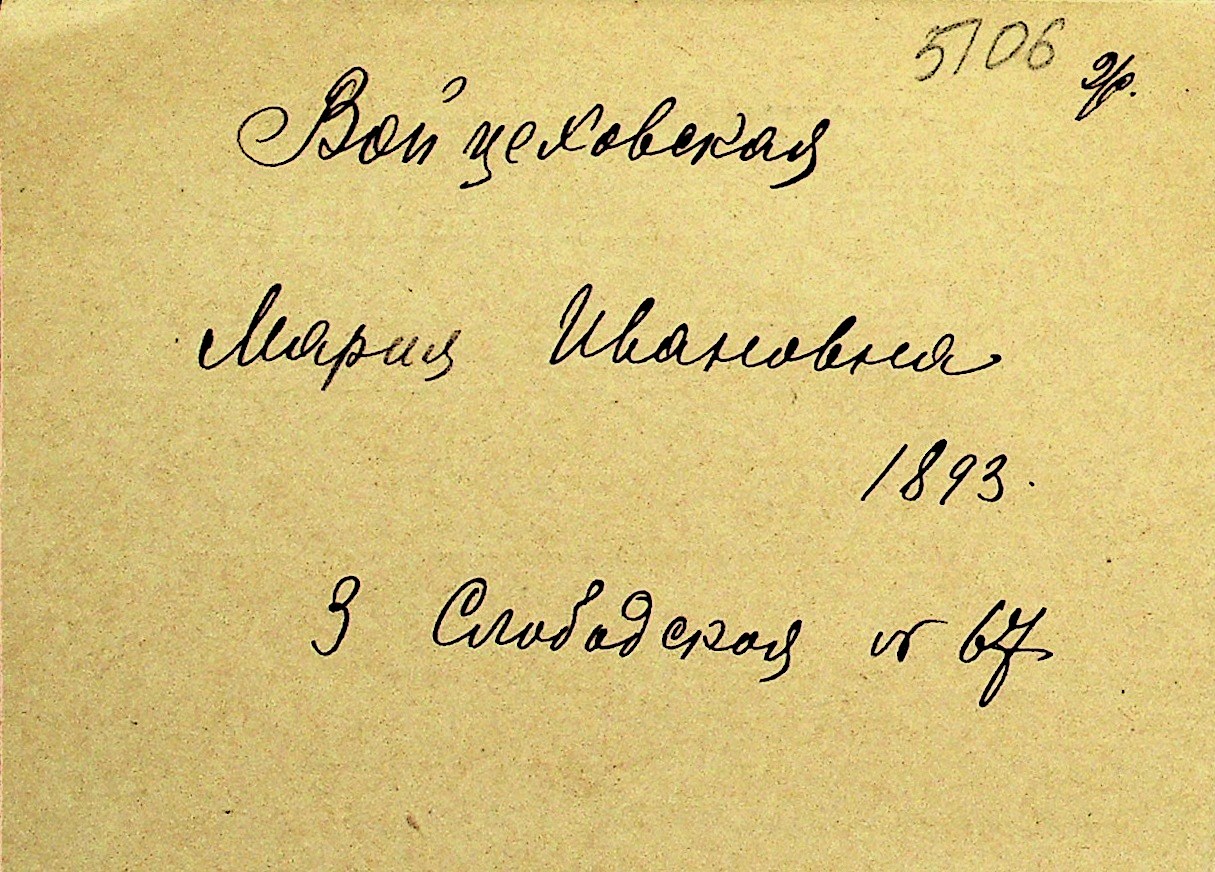 5106
Войцеховская
Мария Ивановна
1893.
3 Слободская № 67